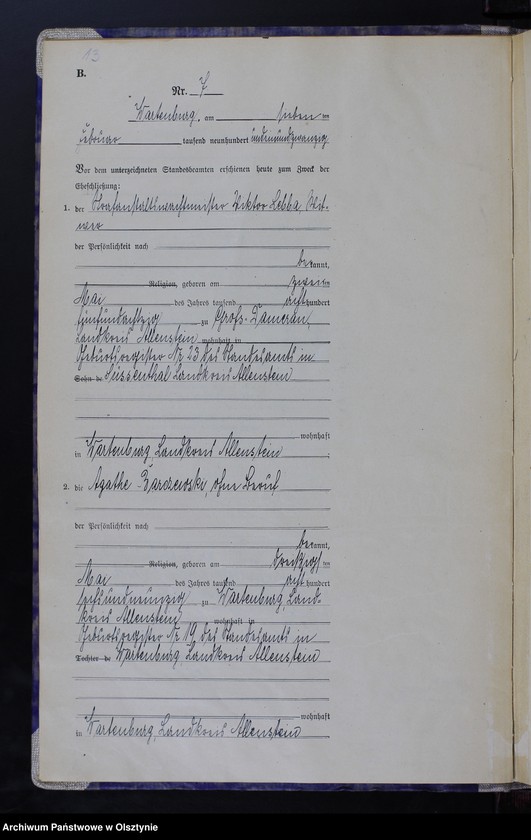 13
B.
Nr. 7
Wartenburg, am sieben ten
Februar tausend neunhundert
Vor dem unterzeichneten Standesbeamten erschienen heute zum Zweck der
Eheschließung:
1. der Strafanstaltswachtmeister Viktor Lebba, Wit-
wer
der Persönlichkeit nach
be kannt,
Religion, geboren am zwei ten
Mai des Jahres tausend acht hundert
fünfundachtzig zu Groß-Damerau,
Landkreis Allenstein wohnhaft in
Geburtsregister Nr 23 des Standesamts in
Sohn de Süssenthal Landkreis Allenstein
wohnhaft
in Wartenburg, Landkreis Allenstein ;
2. die Agathe Barczewski, ohne Beruf
der Persönlichkeit nach
be kannt,
Religion, geboren am dreißigs ten
Mai des Jahres tausend acht hundert
sechsundneunzig zu Wartenburg, Land-
kreis Allenstein wohnhaft in
Geburtsregister Nr 19 des Standesamts in
Tochter de Wartenburg Landkreis Allenstein
wohnhaft
in Wartenburg, Landkreis Allenstein
Archiwum Państwowe w Olsztynie